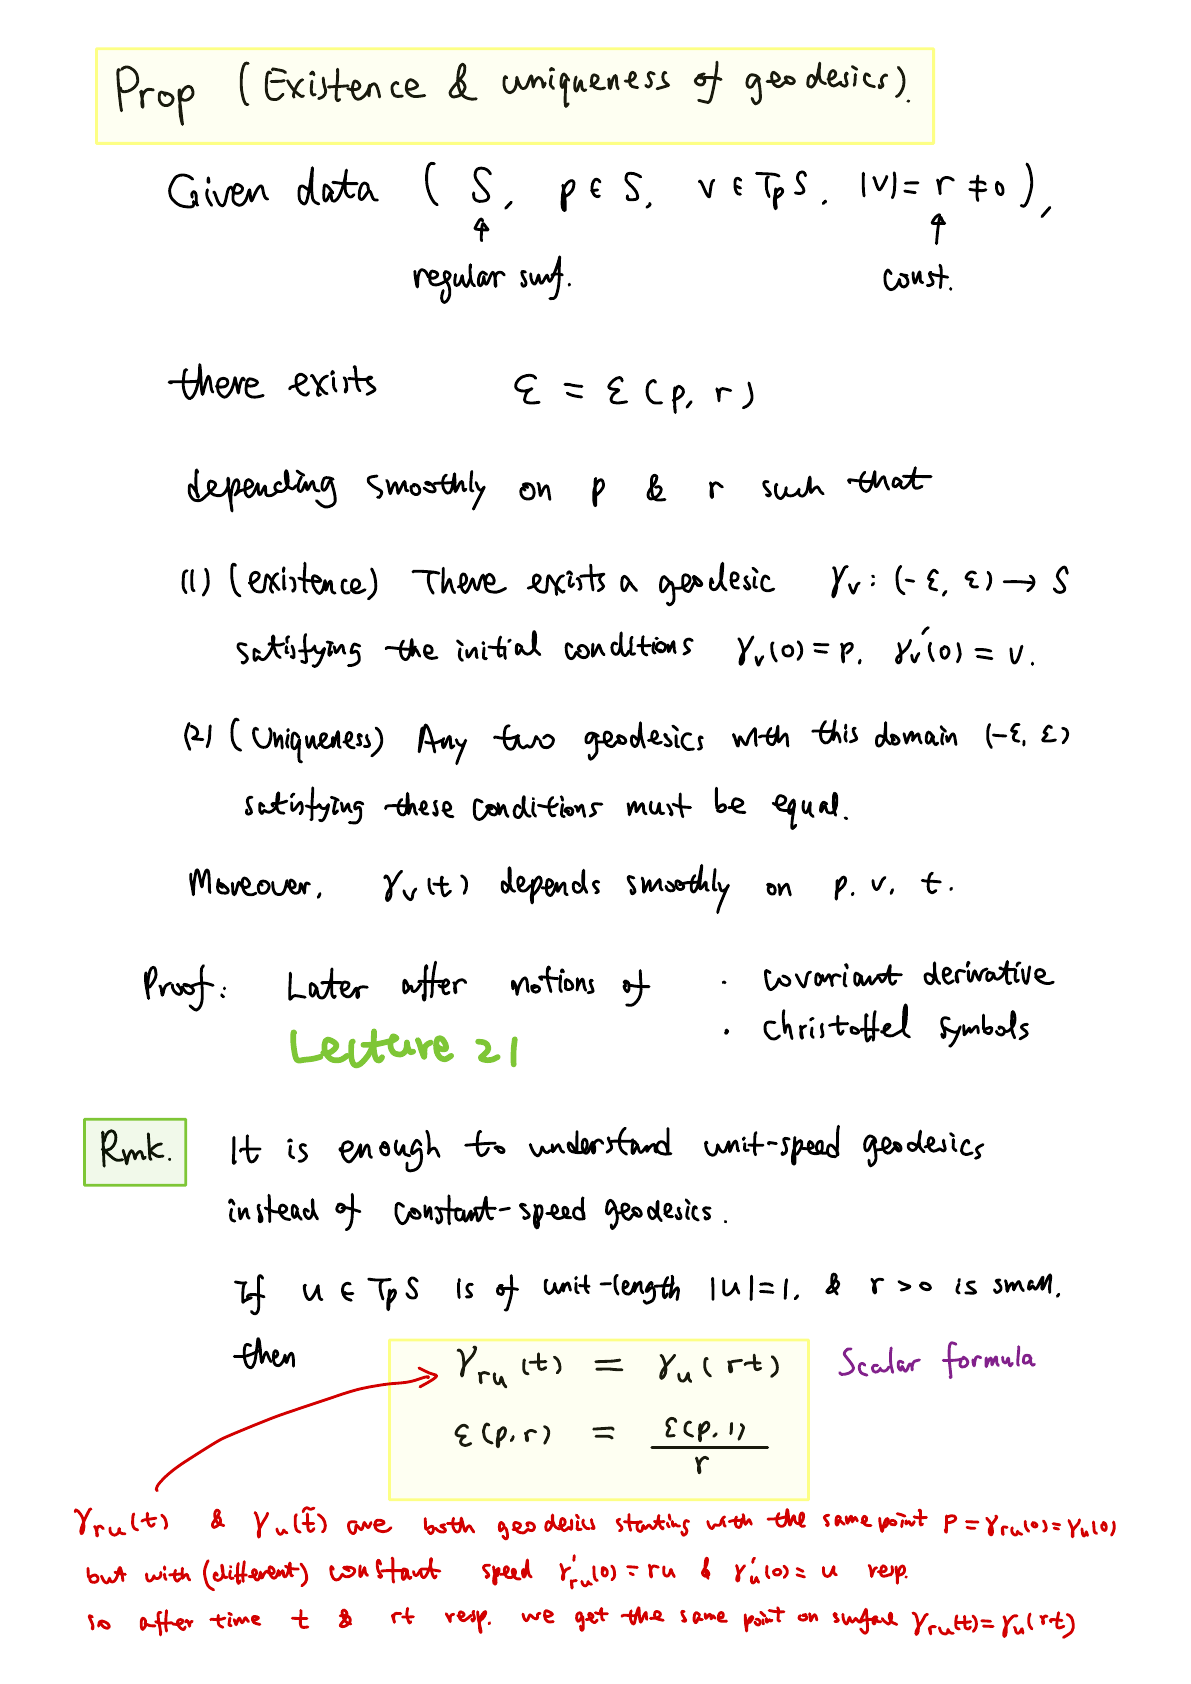 Prop (Existence & uniqueness of geodesics).
Given data ( S, p ∈ S, v ∈ TpS, |v| = r ≠ 0 ),
↑ ↑
regular surf. const.
there exists ε = ε(p, r)
depending smoothly on p & r such that
(1) (existence) There exists a geodesic γ_v : (-ε, ε) → S
satisfying the initial conditions γ_v(0) = p, γ_v'(0) = v.
(2) (Uniqueness) Any two geodesics with this domain (-ε, ε)
satisfying these conditions must be equal.
Moreover, γ_v(t) depends smoothly on p, v, t.
Proof: Later after notions of · covariant derivative
· Christoffel symbols
Lecture 21
Rmk. It is enough to understand unit-speed geodesics
instead of constant-speed geodesics.
If u ∈ TpS is of unit-length |u|=1, & r > 0 is small,
then γ_ru(t) = γ_u(rt) Scalar formula
ε(p, r) = ε(p, 1) / r
γ_ru(t) & γ_u(t̃) are both geodesics starting with the same point p = γ_ru(0) = γ_u(0)
but with (different) constant speed γ'_ru(0) = ru & γ'_u(0) = u resp.
so after time t & rt resp. we get the same point on surface γ_ru(t) = γ_u(rt)